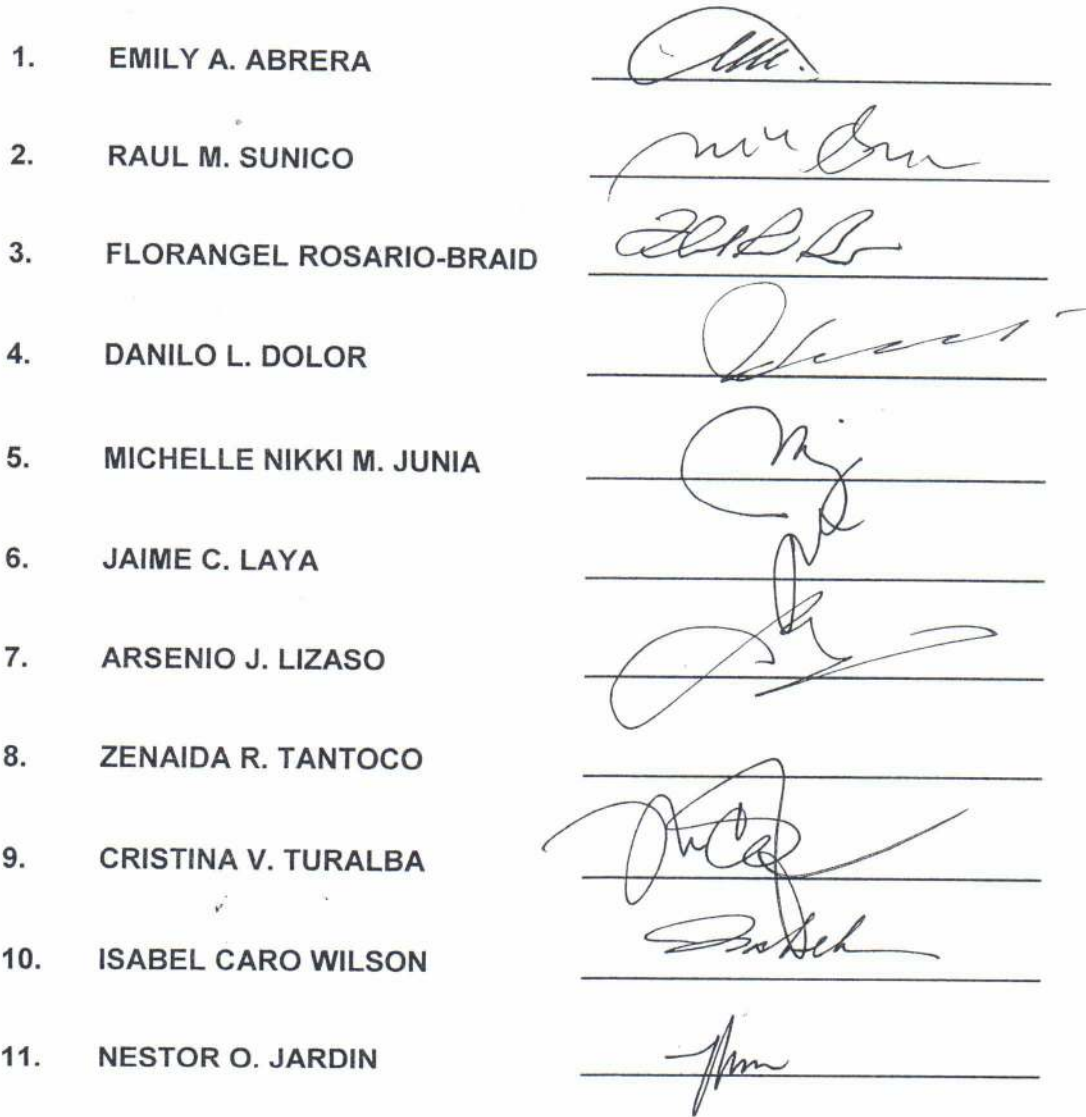 1. EMILY A. ABRERA
2. RAUL M. SUNICO
3. FLORANGEL ROSARIO-BRAID
4. DANILO L. DOLOR
5. MICHELLE NIKKI M. JUNIA
6. JAIME C. LAYA
7. ARSENIO J. LIZASO
8. ZENAIDA R. TANTOCO
9. CRISTINA V. TURALBA
10. ISABEL CARO WILSON
11. NESTOR O. JARDIN